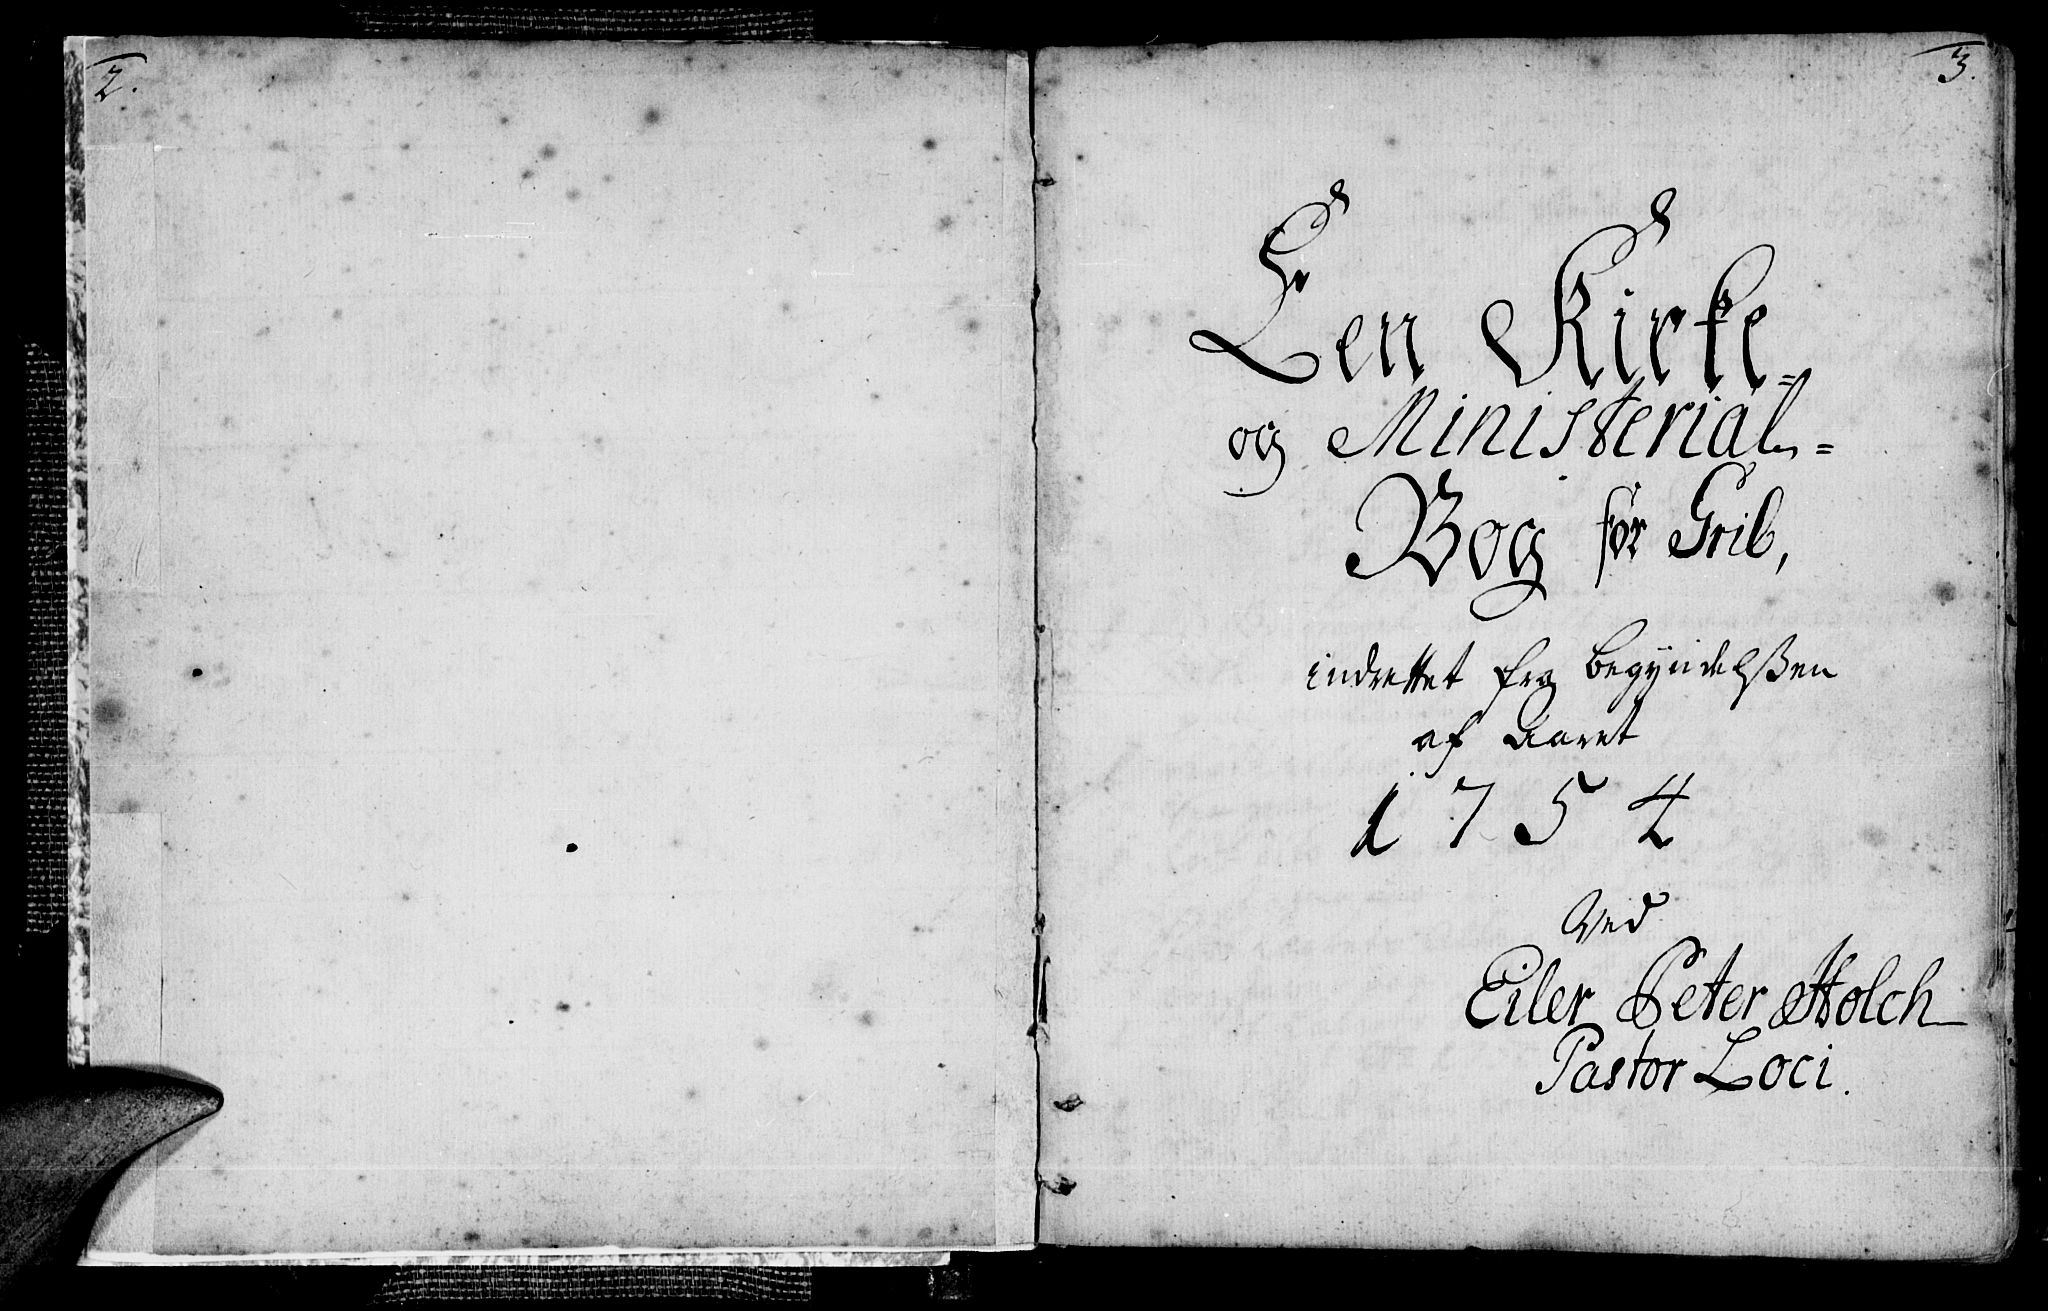 2.
3.
Een Kirke-
og Ministerial-
Bog før Grib,
indrettet fra begyndelsßen
af Aaret
1754
Ved
Eiler Peter Holch
Pastor Loci.